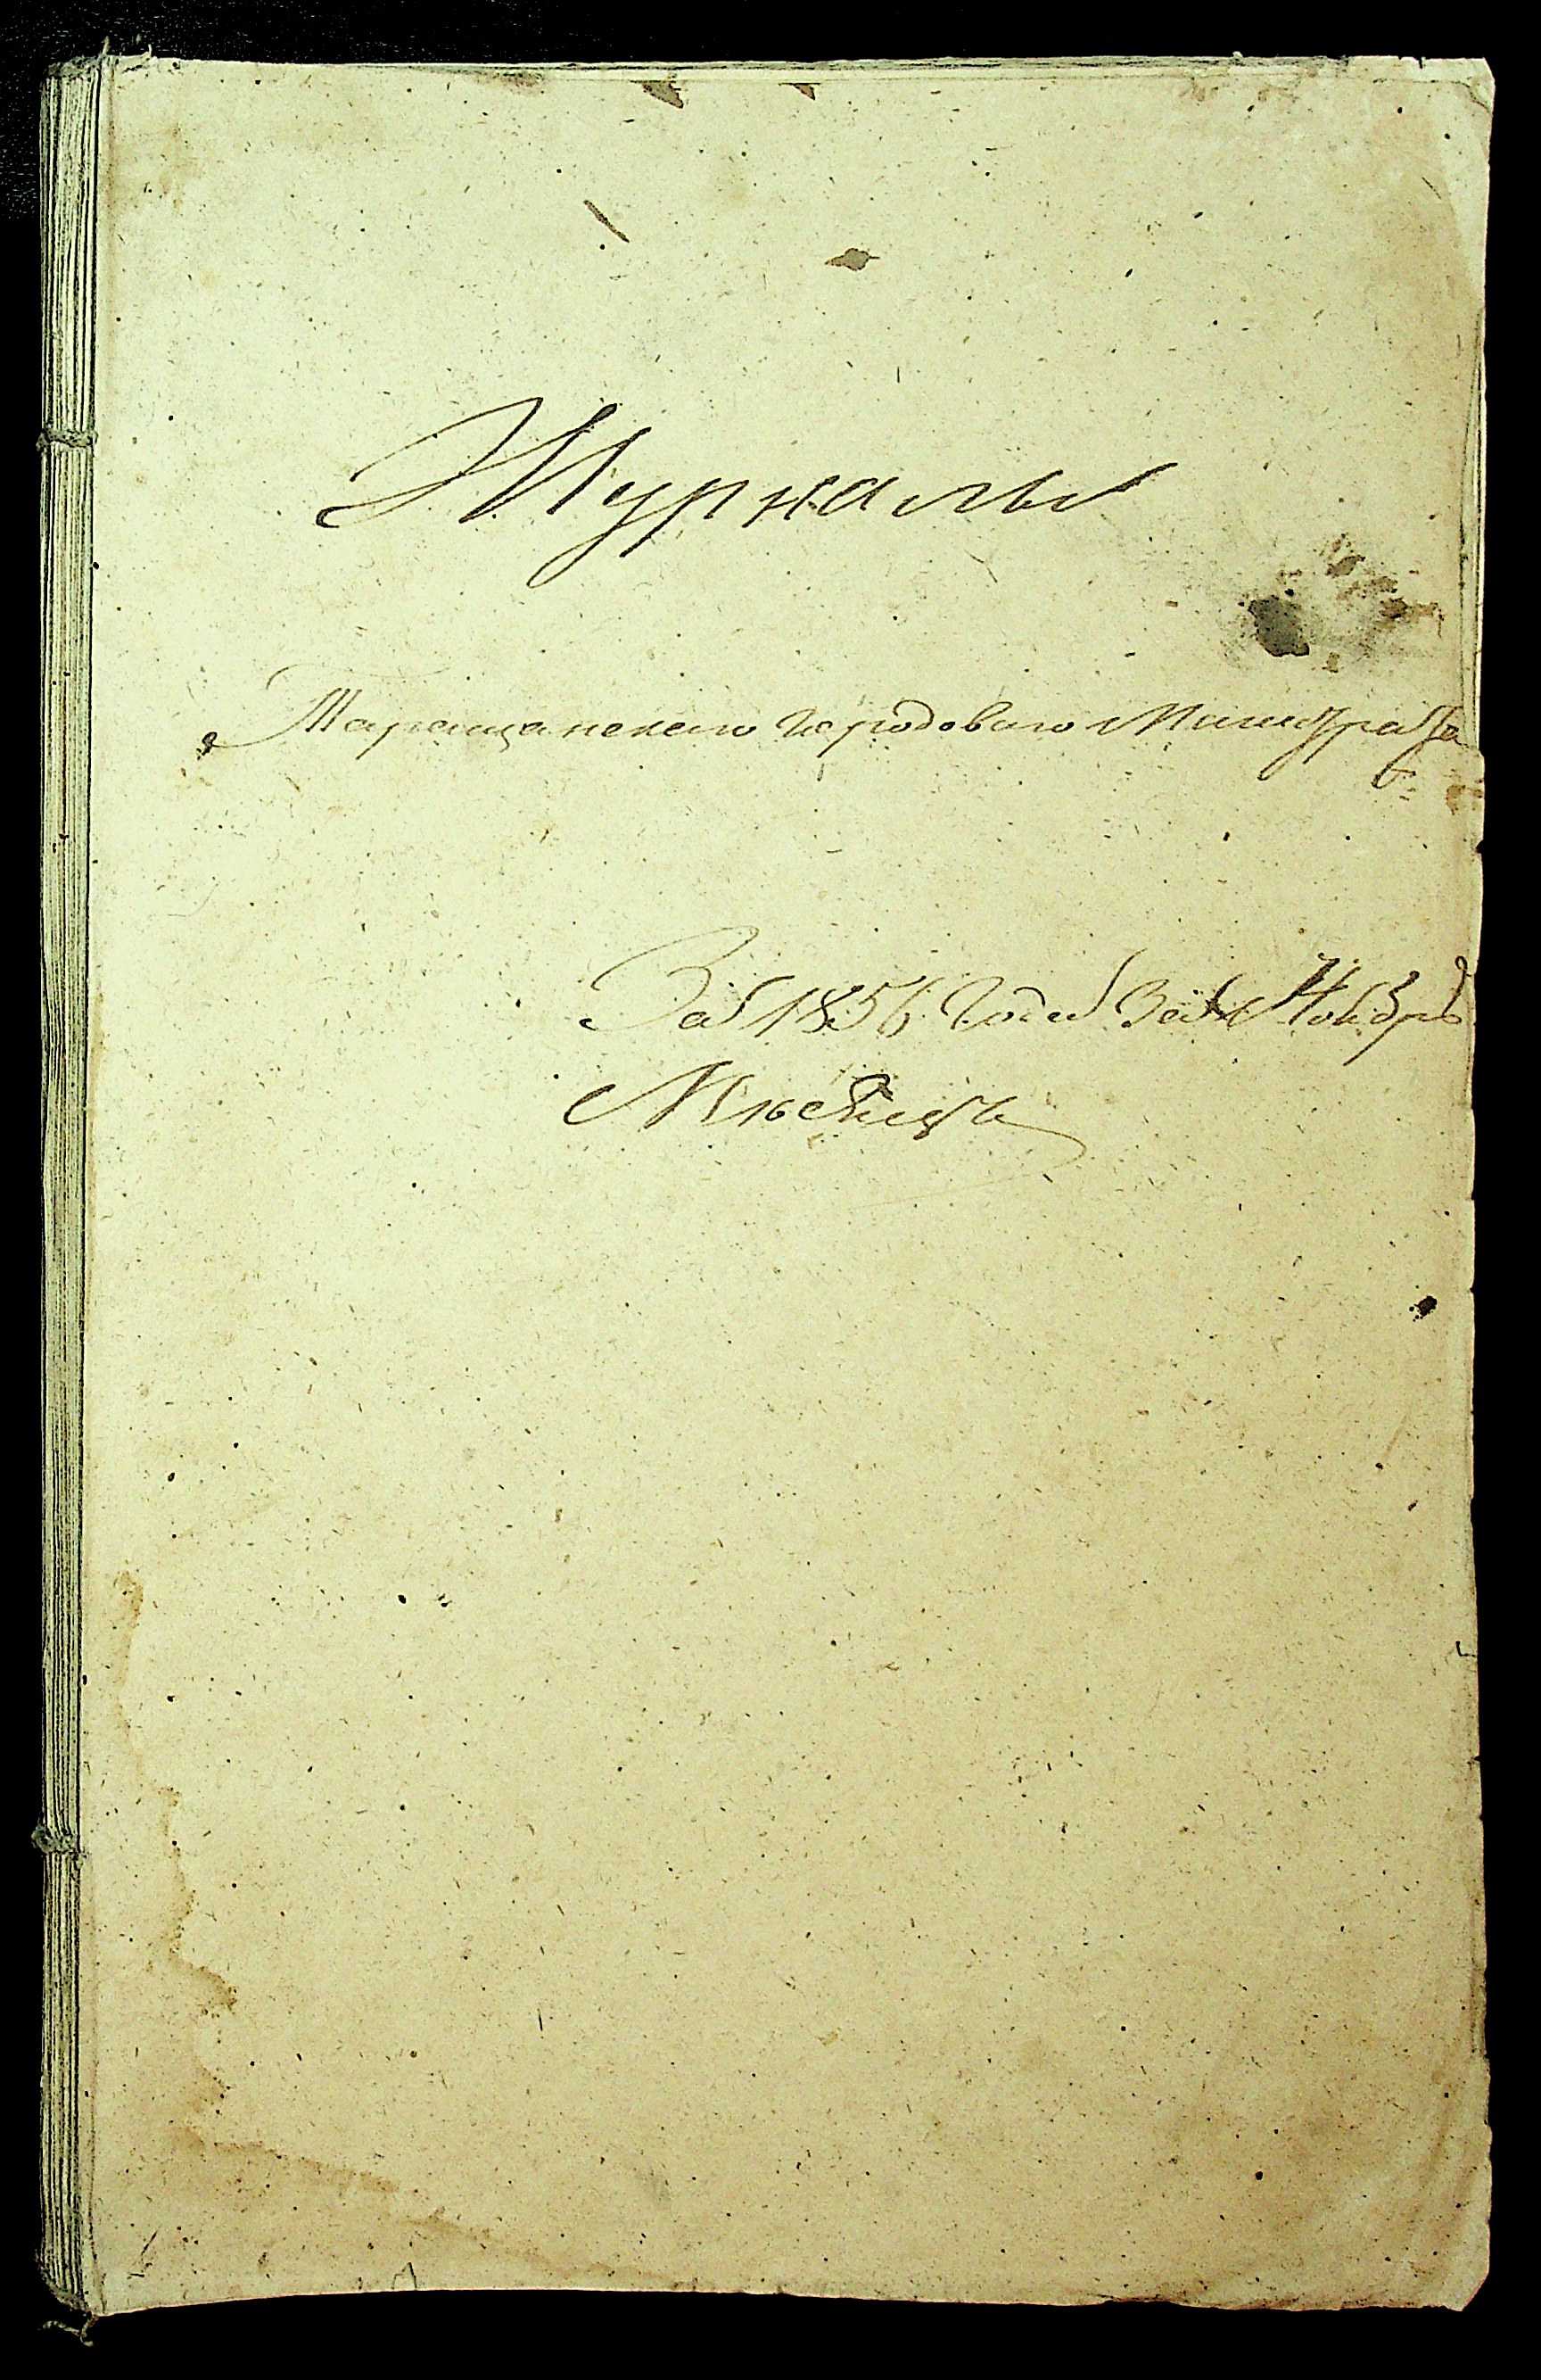 Журналы
Таращанскаго городоваго Магистрата
За 1856 годъ За Ноябрь
Мѣсяцъ